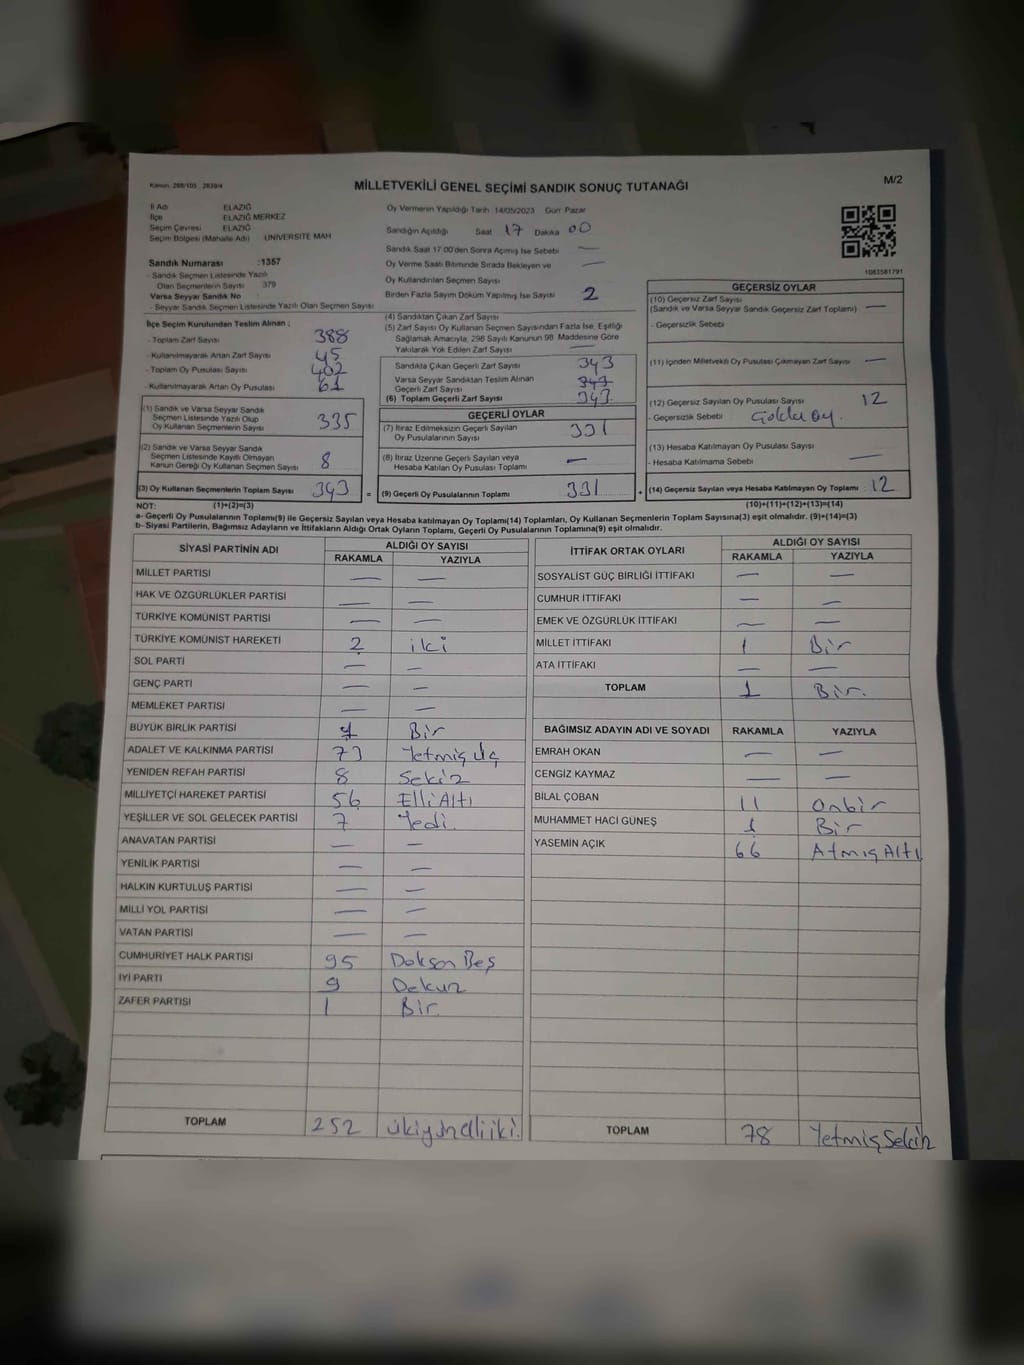 Kanun, 298/105 , 2839/4
MİLLETVEKİLİ GENEL SEÇİMİ SANDIK SONUÇ TUTANAĞI
M/2
İl Adı ELAZIĞ
İlçe ELAZIĞ MERKEZ
Seçim Çevresi ELAZIĞ
Seçim Bölgesi (Mahalle Adı) UNIVERSITE MAH
Sandık Numarası :1357
- Sandık Seçmen Listesinde Yazılı
Olan Seçmenlerin Sayısı 379
Varsa Seyyar Sandık No
- Seyyar Sandık Seçmen Listesinde Yazılı Olan Seçmen Sayısı
Oy Vermenin Yapıldığı Tarih 14/05/2023 Gün Pazar
Sandığın Açıldığı Saat 17 Dakika 00
Sandık Saat 17:00'den Sonra Açımış İse Sebebi —
Oy Verme Saati Bitiminde Sırada Bekleyen ve
Oy Kullandırılan Seçmen Sayısı —
Birden Fazla Sayım Döküm Yapılmış İse Sayısı 2
1083581791
İlçe Seçim Kurulundan Teslim Alınan ;
- Toplam Zarf Sayısı 388
- Kullanılmayarak Artan Zarf Sayısı 45
- Toplam Oy Pusulası Sayısı 402
- Kullanılmayarak Artan Oy Pusulası 61
(1) Sandık ve Varsa Seyyar Sandık
Seçmen Listesinde Yazılı Olup
Oy Kullanan Seçmenlerin Sayısı 335
(2) Sandık ve Varsa Seyyar Sandık
Seçmen Listesinde Kayıtlı Olmayan
Kanun Gereği Oy Kullanan Seçmen Sayısı 8
(3) Oy Kullanan Seçmenlerin Toplam Sayısı 343 =
(4) Sandıktan Çıkan Zarf Sayısı
(5) Zarf Sayısı Oy Kullanan Seçmen Sayısından Fazla İse, Eşitliği
Sağlamak Amacıyla, 298 Sayılı Kanunun 98. Maddesine Göre
Yakılarak Yok Edilen Zarf Sayısı —
Sandıkta Çıkan Geçerli Zarf Sayısı 343
Varsa Seyyar Sandıktan Teslim Alınan
Geçerli Zarf Sayısı 343
(6) Toplam Geçerli Zarf Sayısı 343
GEÇERLİ OYLAR
(7) İtiraz Edilmeksizin Geçerli Sayılan
Oy Pusulalarının Sayısı 331
(8) İtiraz Üzerine Geçerli Sayılan veya
Hesaba Katılan Oy Pusulası Toplamı —
(9) Geçerli Oy Pusulalarının Toplamı 331 +
GEÇERSİZ OYLAR
(10) Geçersiz Zarf Sayısı
(Sandık ve Varsa Seyyar Sandık Geçersiz Zarf Toplamı) —
- Geçersizlik Sebebi
(11) İçinden Milletvekili Oy Pusulası Çıkmayan Zarf Sayısı —
(12) Geçersiz Sayılan Oy Pusulası Sayısı 12
- Geçersizlik Sebebi oy.
(13) Hesaba Katılmayan Oy Pusulası Sayısı
- Hesaba Katılmama Sebebi —
(14) Geçersiz Sayılan veya Hesaba Katılmayan Oy Toplamı 12
NOT: (1)+(2)=(3) (10)+(11)+(12)+(13)=(14)
a- Geçerli Oy Pusulalarının Toplamı(9) ile Geçersiz Sayılan veya Hesaba Katılmayan Oy Toplamı(14) Toplamları, Oy Kullanan Seçmenlerin Toplam Sayısına(3) eşit olmalıdır. (9)+(14)=(3)
b- Siyasi Partilerin, Bağımsız Adayların ve İttifakların Aldığı Ortak Oyların Toplamı, Geçerli Oy Pusulalarının Toplamına(9) eşit olmalıdır.
SİYASİ PARTİNİN ADI ALDIĞI OY SAYISI
RAKAMLA YAZIYLA
MİLLET PARTİSİ — —
HAK VE ÖZGÜRLÜKLER PARTİSİ — —
TÜRKİYE KOMÜNİST PARTİSİ — —
TÜRKİYE KOMÜNİST HAREKETİ 2 iki
SOL PARTİ — —
GENÇ PARTİ — —
MEMLEKET PARTİSİ — —
BÜYÜK BİRLİK PARTİSİ 1 Bir
ADALET VE KALKINMA PARTİSİ 73 Yetmiş Üç
YENİDEN REFAH PARTİSİ 8 Sekiz
MİLLİYETÇİ HAREKET PARTİSİ 56 Elli Altı
YEŞİLLER VE SOL GELECEK PARTİSİ 7 Yedi.
ANAVATAN PARTİSİ — —
YENİLİK PARTİSİ — —
HALKIN KURTULUŞ PARTİSİ — —
MİLLİ YOL PARTİSİ — —
VATAN PARTİSİ — —
CUMHURİYET HALK PARTİSİ 95 Doksan Beş
İYİ PARTİ 9 Dokuz
ZAFER PARTİSİ 1 Bir
TOPLAM 252 ikiyüzelliiki.
İTTİFAK ORTAK OYLARI ALDIĞI OY SAYISI
RAKAMLA YAZIYLA
SOSYALİST GÜÇ BİRLİĞİ İTTİFAKI — —
CUMHUR İTTİFAKI — —
EMEK VE ÖZGÜRLÜK İTTİFAKI — —
MİLLET İTTİFAKI 1 Bir
ATA İTTİFAKI — —
TOPLAM 1 Bir.
BAĞIMSIZ ADAYIN ADI VE SOYADI RAKAMLA YAZIYLA
EMRAH OKAN — —
CENGİZ KAYMAZ — —
BİLAL ÇOBAN 11 Onbir
MUHAMMET HACI GÜNEŞ 1 Bir
YASEMİN AÇIK 66 Atmış Altı
TOPLAM 78 Yetmiş Sekiz